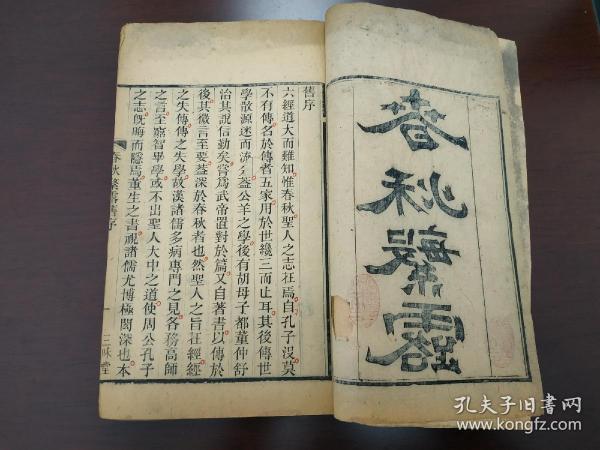 春秋繁露
舊序
六經道大而難知惟春秋聖人之志在焉自孔子沒莫
不有傳名於傳者五家用於世纔三而止耳其後傳世
學散源迷而流益公羊之學後有胡母子都董仲舒
治其說信勤矣嘗爲武帝置對於篇又自著書以傳於
後其微言至要葢深於春秋者也然聖人之旨在經經
之失傳傳之失學故漢諸儒多病專門之見各務高師
之言至窮智畢學或不出聖人大中之道使周公孔子
之志旣晦而隱焉董生之書視諸儒尤博極閎深也本
春秋繁露舊序
一
三味堂
孔夫子旧书网
www.kongfz.com